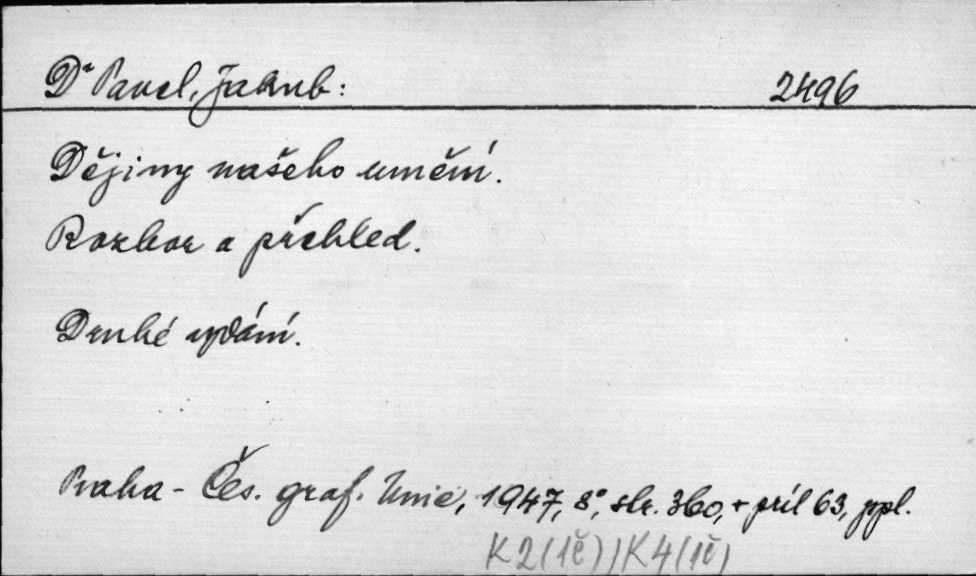 Dr Pavel, Jakub: 2496
Dějiny našeho umění.
Rozbor a přehled.
Druhé vydání.
Praha - Čes. graf. Unie, 1947, 8°, str. 360, + příl 63, ppl.
K2(1č)/K4(1č)